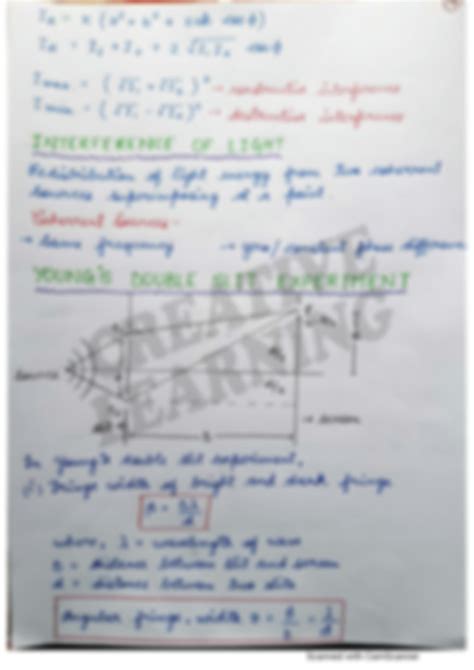 I_R = I₁ + I₂ + 2 √I₁I₂ cosφ
I_max = (√I₁ + √I₂)² → constructive interference
I_min = (√I₁ - √I₂)² → destructive interference
INTERFERENCE OF LIGHT
Redistribution of light energy from two coherent
sources superimposing at a point.
Coherent Sources -
→ Same frequency → zero/constant phase difference
YOUNG'S DOUBLE SLIT EXPERIMENT
CREATIVE
LEARNING
Source
→ screen
In young's double slit experiment,
Fringe width of bright and dark fringe
β = Dλ/d
where, λ = wavelength of wave
D = distance between slit and screen
d = distance between two slits
Angular fringe width
Scanned with CamScanner